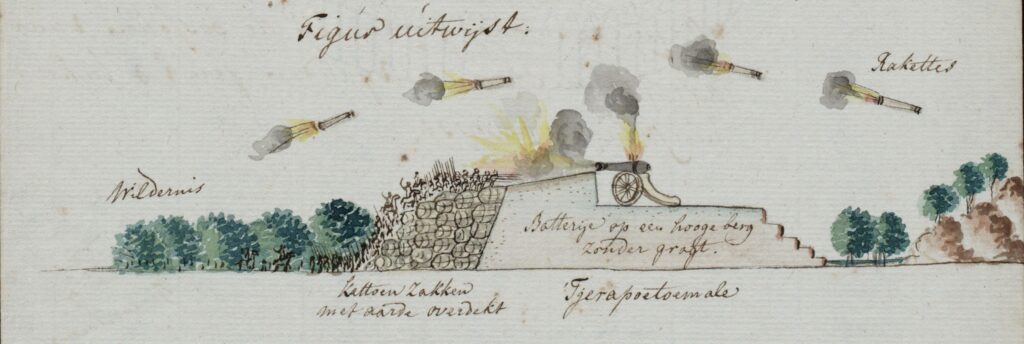 Figur uitwijst:
Rakettes
Wildernis
Batterije op een hooge berg
zonder gragt.
kattoen zakken
met aarde overdekt
Tjerapoetoemale